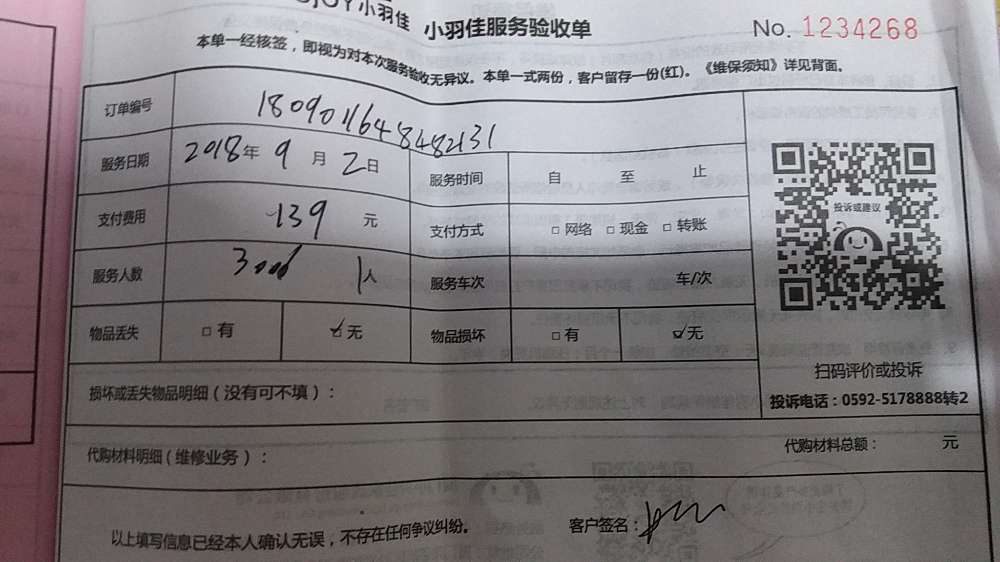 小羽佳
小羽佳服务验收单
No. 1234268
本单一经核签，即视为对本次服务验收无异议。本单一式两份，客户留存一份(红)。《维保须知》详见背面。
订单编号 1809011648482131
服务日期 2018年 9月 2日 服务时间 自 至 止
支付费用 139 元 支付方式 □网络 □现金 □转账
服务人数 1人 服务车次 车/次
物品丢失 □有 ☑无 物品损坏 □有 ☑无
投诉或建议
扫码评价或投诉
投诉电话：0592-5178888转2
损坏或丢失物品明细（没有可不填）：
代购材料明细（维修业务）： 代购材料总额： 元
以上填写信息已经本人确认无误，不存在任何争议纠纷。 客户签名：